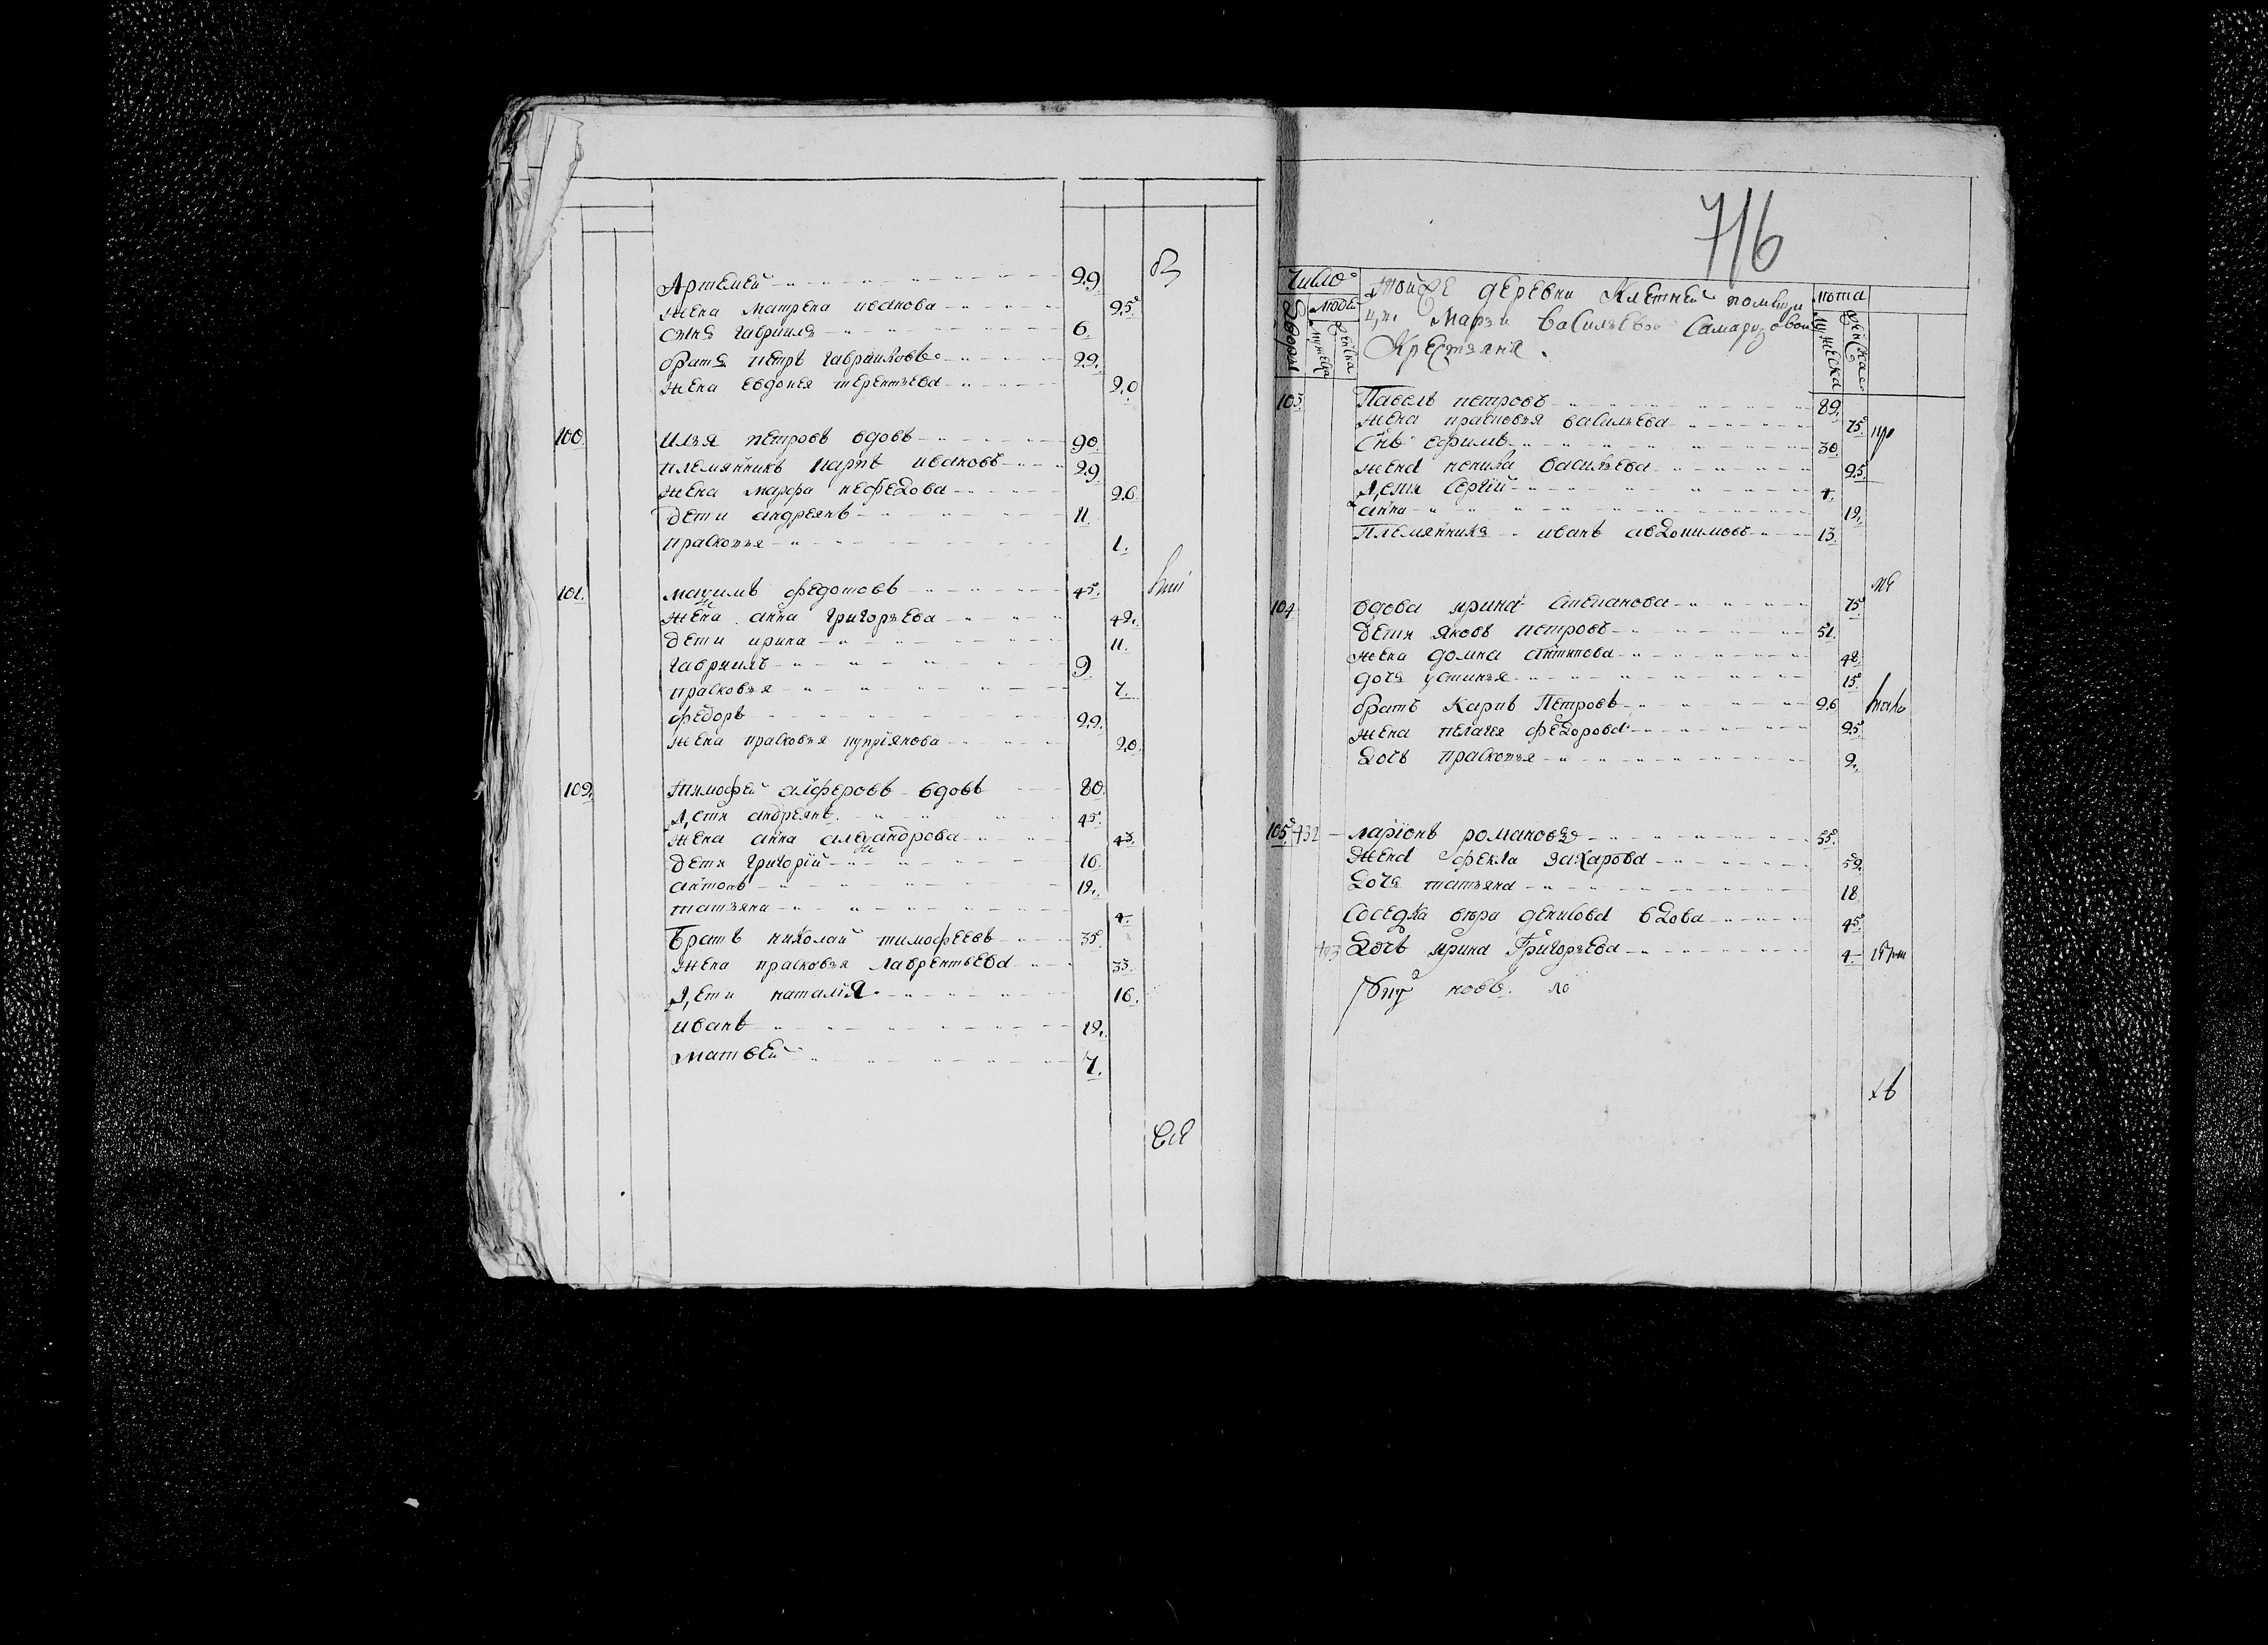 Артемей 29
жена матрена иванова 25
сынъ гавриила 6
братъ петръ гавриловъ 22
жена евдокея терентьева 20
100 илья петровъ вдовъ 90
племянникъ карпъ ивановъ 29
жена марфа нефедова 26
дети андреянъ 11
прасковья 1
101 мазимъ федотовъ 45
жена анна григорьева 42
дети ирина 11
гаврилъ 9
прасковья 7
федоръ 22
жена прасковья купріянова 20
102 тимофей алферовъ вдовъ 80
дети андреянъ 45
жена анна александрова 43
дети григорій 16
антонъ 12
татьяна 4
братъ николай тимофеевъ 35
жена прасковья лаврентьева 33
дети наталія 16
иванъ 12
матвей 7
вз
кні
ея
716
Число
Дворы
людей
мужеска
женска
тойже деревни Клетней помещи
цы марьи васильевой Самаризовой
Крестьяня
лета
мужеска
женска
103 Павелъ петровъ 89
жена прасковья васильева 75
снъ ефимъ 30
жена васильева 25
дети Сергій 4
анна 12
Племянникъ иванъ авдокимовъ 13
104 вдова ирина степанова 75
дети яковъ петровъ 51
жена домна антипова 48
дочь устинья 15
братъ Карпъ Петровъ 26
жена пелагея федорова 25
дочь прасковья 2
105 432 ларіонъ романовъ 55
жена фекла захарова 52
дочь татьяна 18
соседка вера денисова вдова 45
дочь ирина григорьева 4
новъ ло